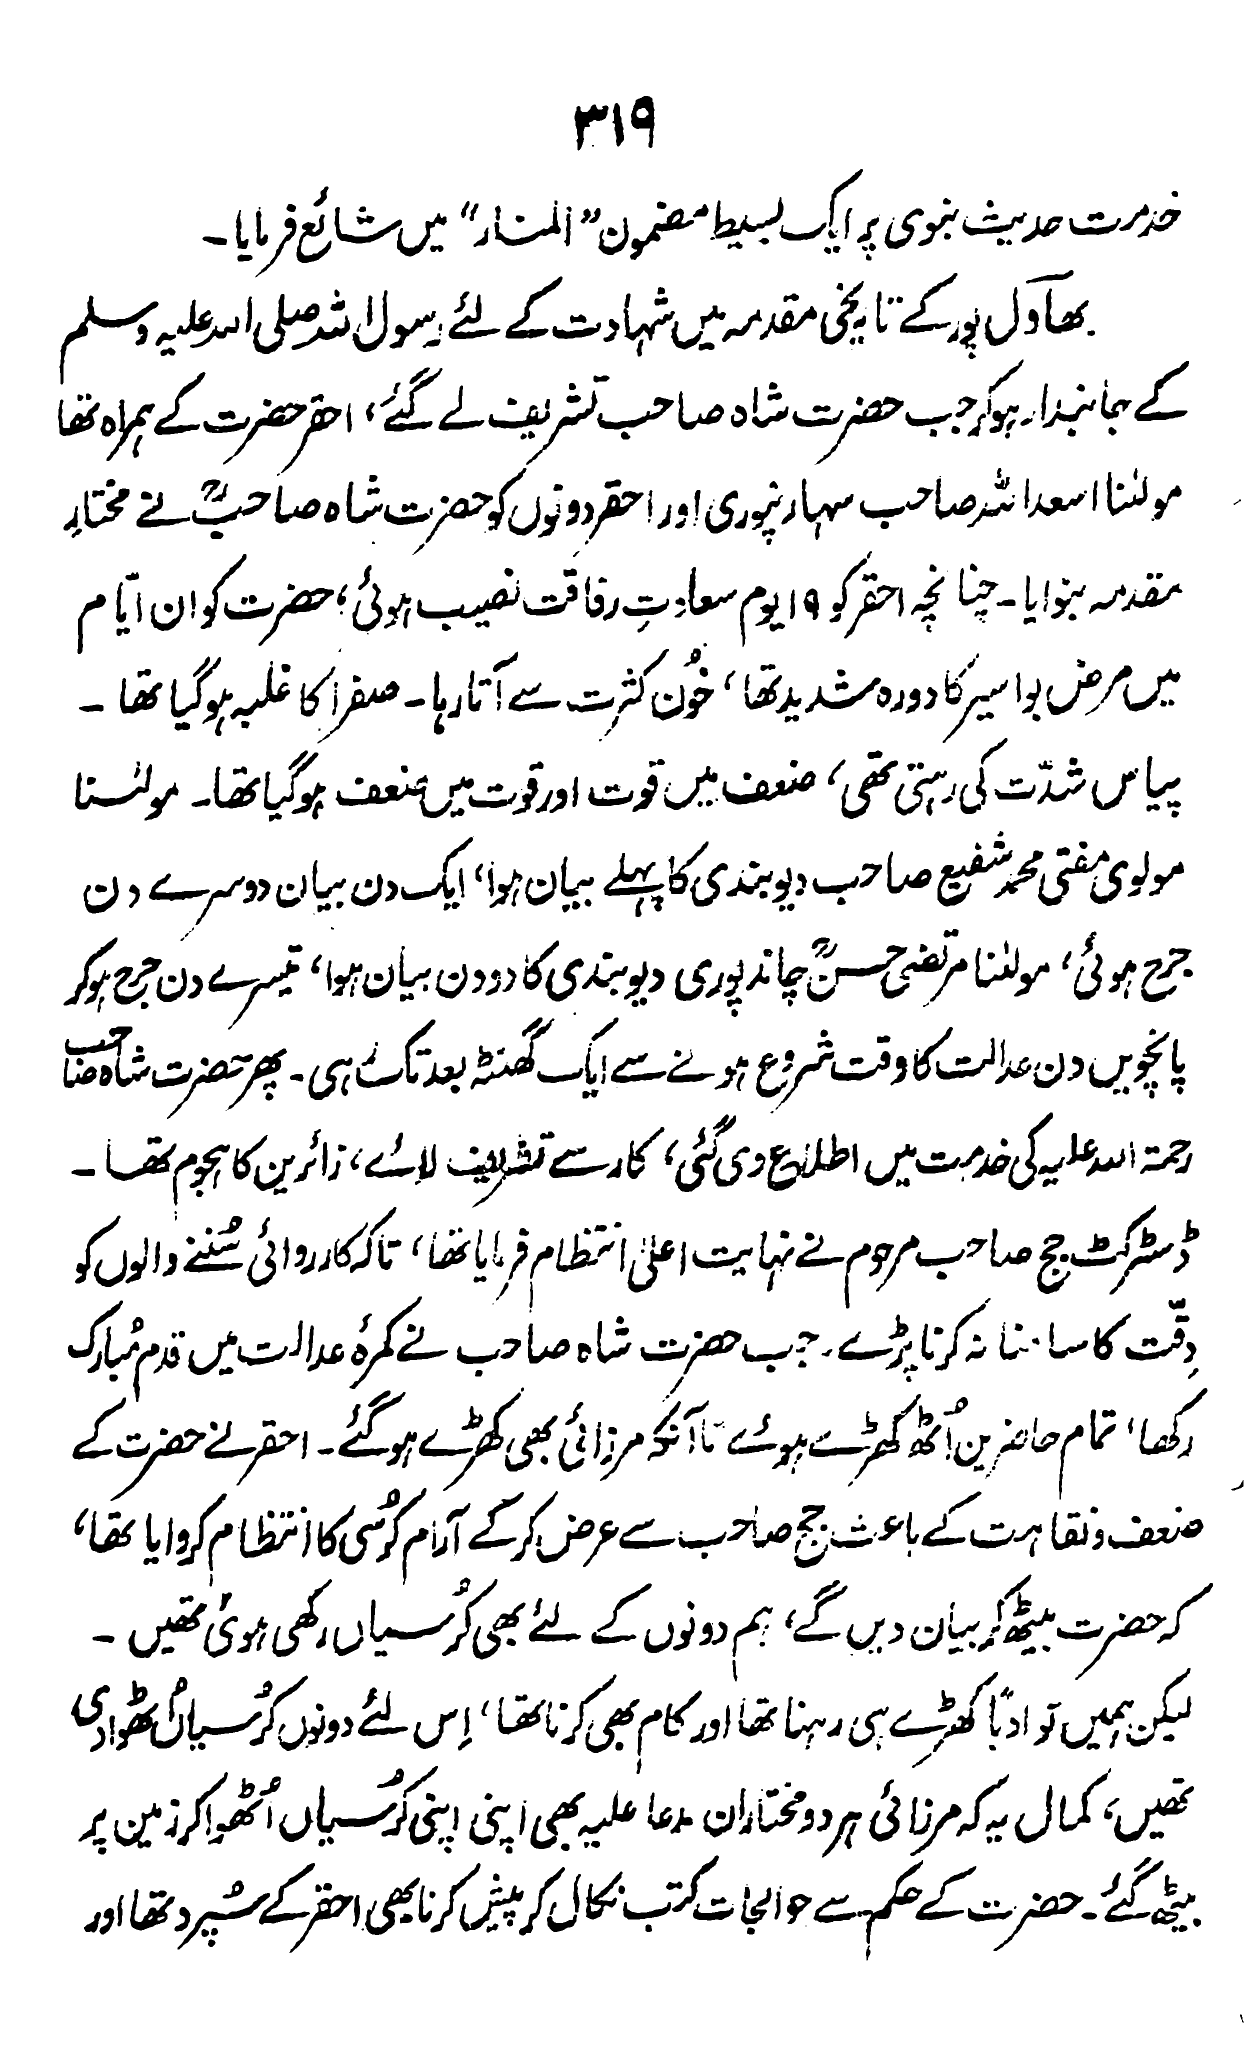 ۳۱۹
خدمت حدیث نبوی پر ایک بسیط مضمون ”المنار“ میں شائع فرمایا۔
بھاَول پور کے تاریخی مقدمہ میں شہادت کے لئے رسول اللہ صلی اللہ علیہ وسلم
کے جانبدار ہوکر جب حضرت شاہ صاحب تشریف لے گئے، احقر حضرت کے ہمراہ تھا
مولٰنا اسعد اللہ صاحب سہارنپوری اور احقر دونوں کو حضرت شاہ صاحبؒ نے مختارِ
مقدمہ بنوایا۔ چنانچہ احقر کو ۱۹ یوم سعادتِ رفاقت نصیب ہوئی؛ حضرت کو ان ایّام
میں مرض بواسیر کا دورہ شدید تھا، خُون کثرت سے آتا رہا۔ صفرا کا غلبہ ہوگیا تھا۔
پیاس شدّت کی رہتی تھی، ضعف میں قوت اور قوت میں ضعف ہوگیا تھا۔ مولٰنا
مولوی مفتی محمد شفیع صاحب دیوبندی کا پہلے بیان ہوا، ایک دن بیان دوسرے دن
جرح ہوئی، مولٰنا مرتضیٰ حسنؒ چاندپوری دیوبندی کا دو دن بیان ہوا، تیسرے دن جرح ہوکر
پانچویں دن عدالت کا وقت شروع ہونے سے ایک گھنٹہ بعد تک رہی۔ پھر حضرت شاہ صاحب
رحمۃ اللہ علیہ کی خدمت میں اطلاع دی گئی، کار سے تشریف لائے، زائرین کا ہجوم تھا۔
ڈسٹرکٹ جج صاحب مرحوم نے نہایت اعلیٰ انتظام فرمایا تھا، تاکہ کارروائی سُننے والوں کو
دِقّت کا سامنا نہ کرنا پڑے۔ جب حضرت شاہ صاحب نے کمرۂ عدالت میں قدم مُبارک
رکھا، تمام حاضرین اُٹھ کھڑے ہوئے تا آنکہ مرزائی بھی کھڑے ہوگئے۔ احقر نے حضرت کے
ضعف ونقاہت کے باعث جج صاحب سے عرض کرکے آرام کُرسی کا انتظام کروایا تھا،
کہ حضرت بیٹھ کر بیان دیں گے، ہم دونوں کے لئے بھی کُرسیاں رکھی ہوئی تھیں۔
لیکن ہمیں تو ادبًا کھڑے ہی رہنا تھا اور کام بھی کرنا تھا، اِس لئے دونوں کُرسیاں اُٹھوا دی
تھیں، کمال یہ کہ مرزائی ہر دو مختاران مدعا علیہ بھی اپنی اپنی کُرسیاں اُٹھوا کر زمین پر
بیٹھ گئے۔ حضرت کے حکم سے حوالجات کتب نکال کر پیش کرنا بھی احقر کے سُپرد تھا اور